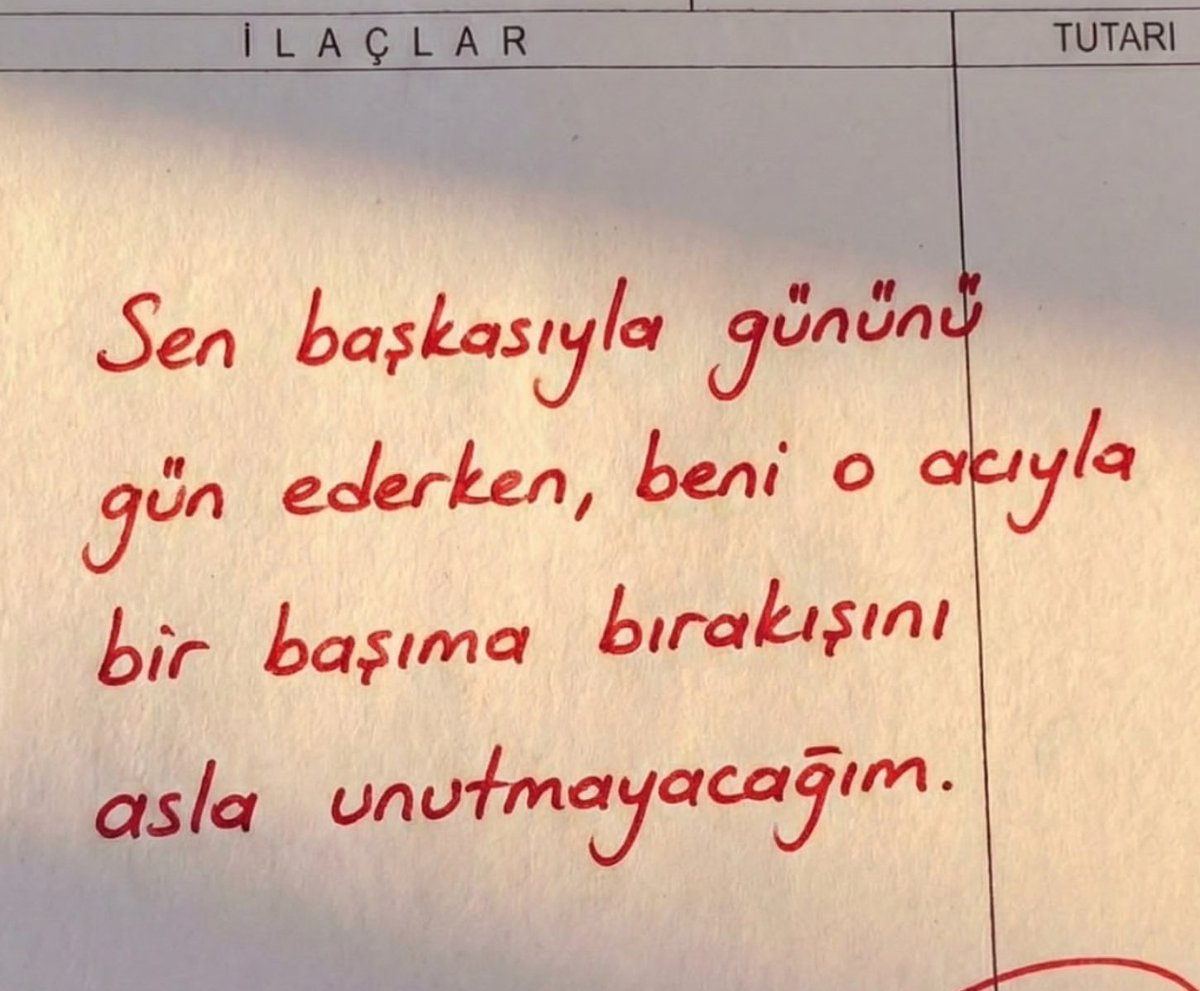 İLAÇLAR TUTARI
Sen başkasıyla gününü
gün ederken, beni o acıyla
bir başıma bırakışını
asla unutmayacağım.